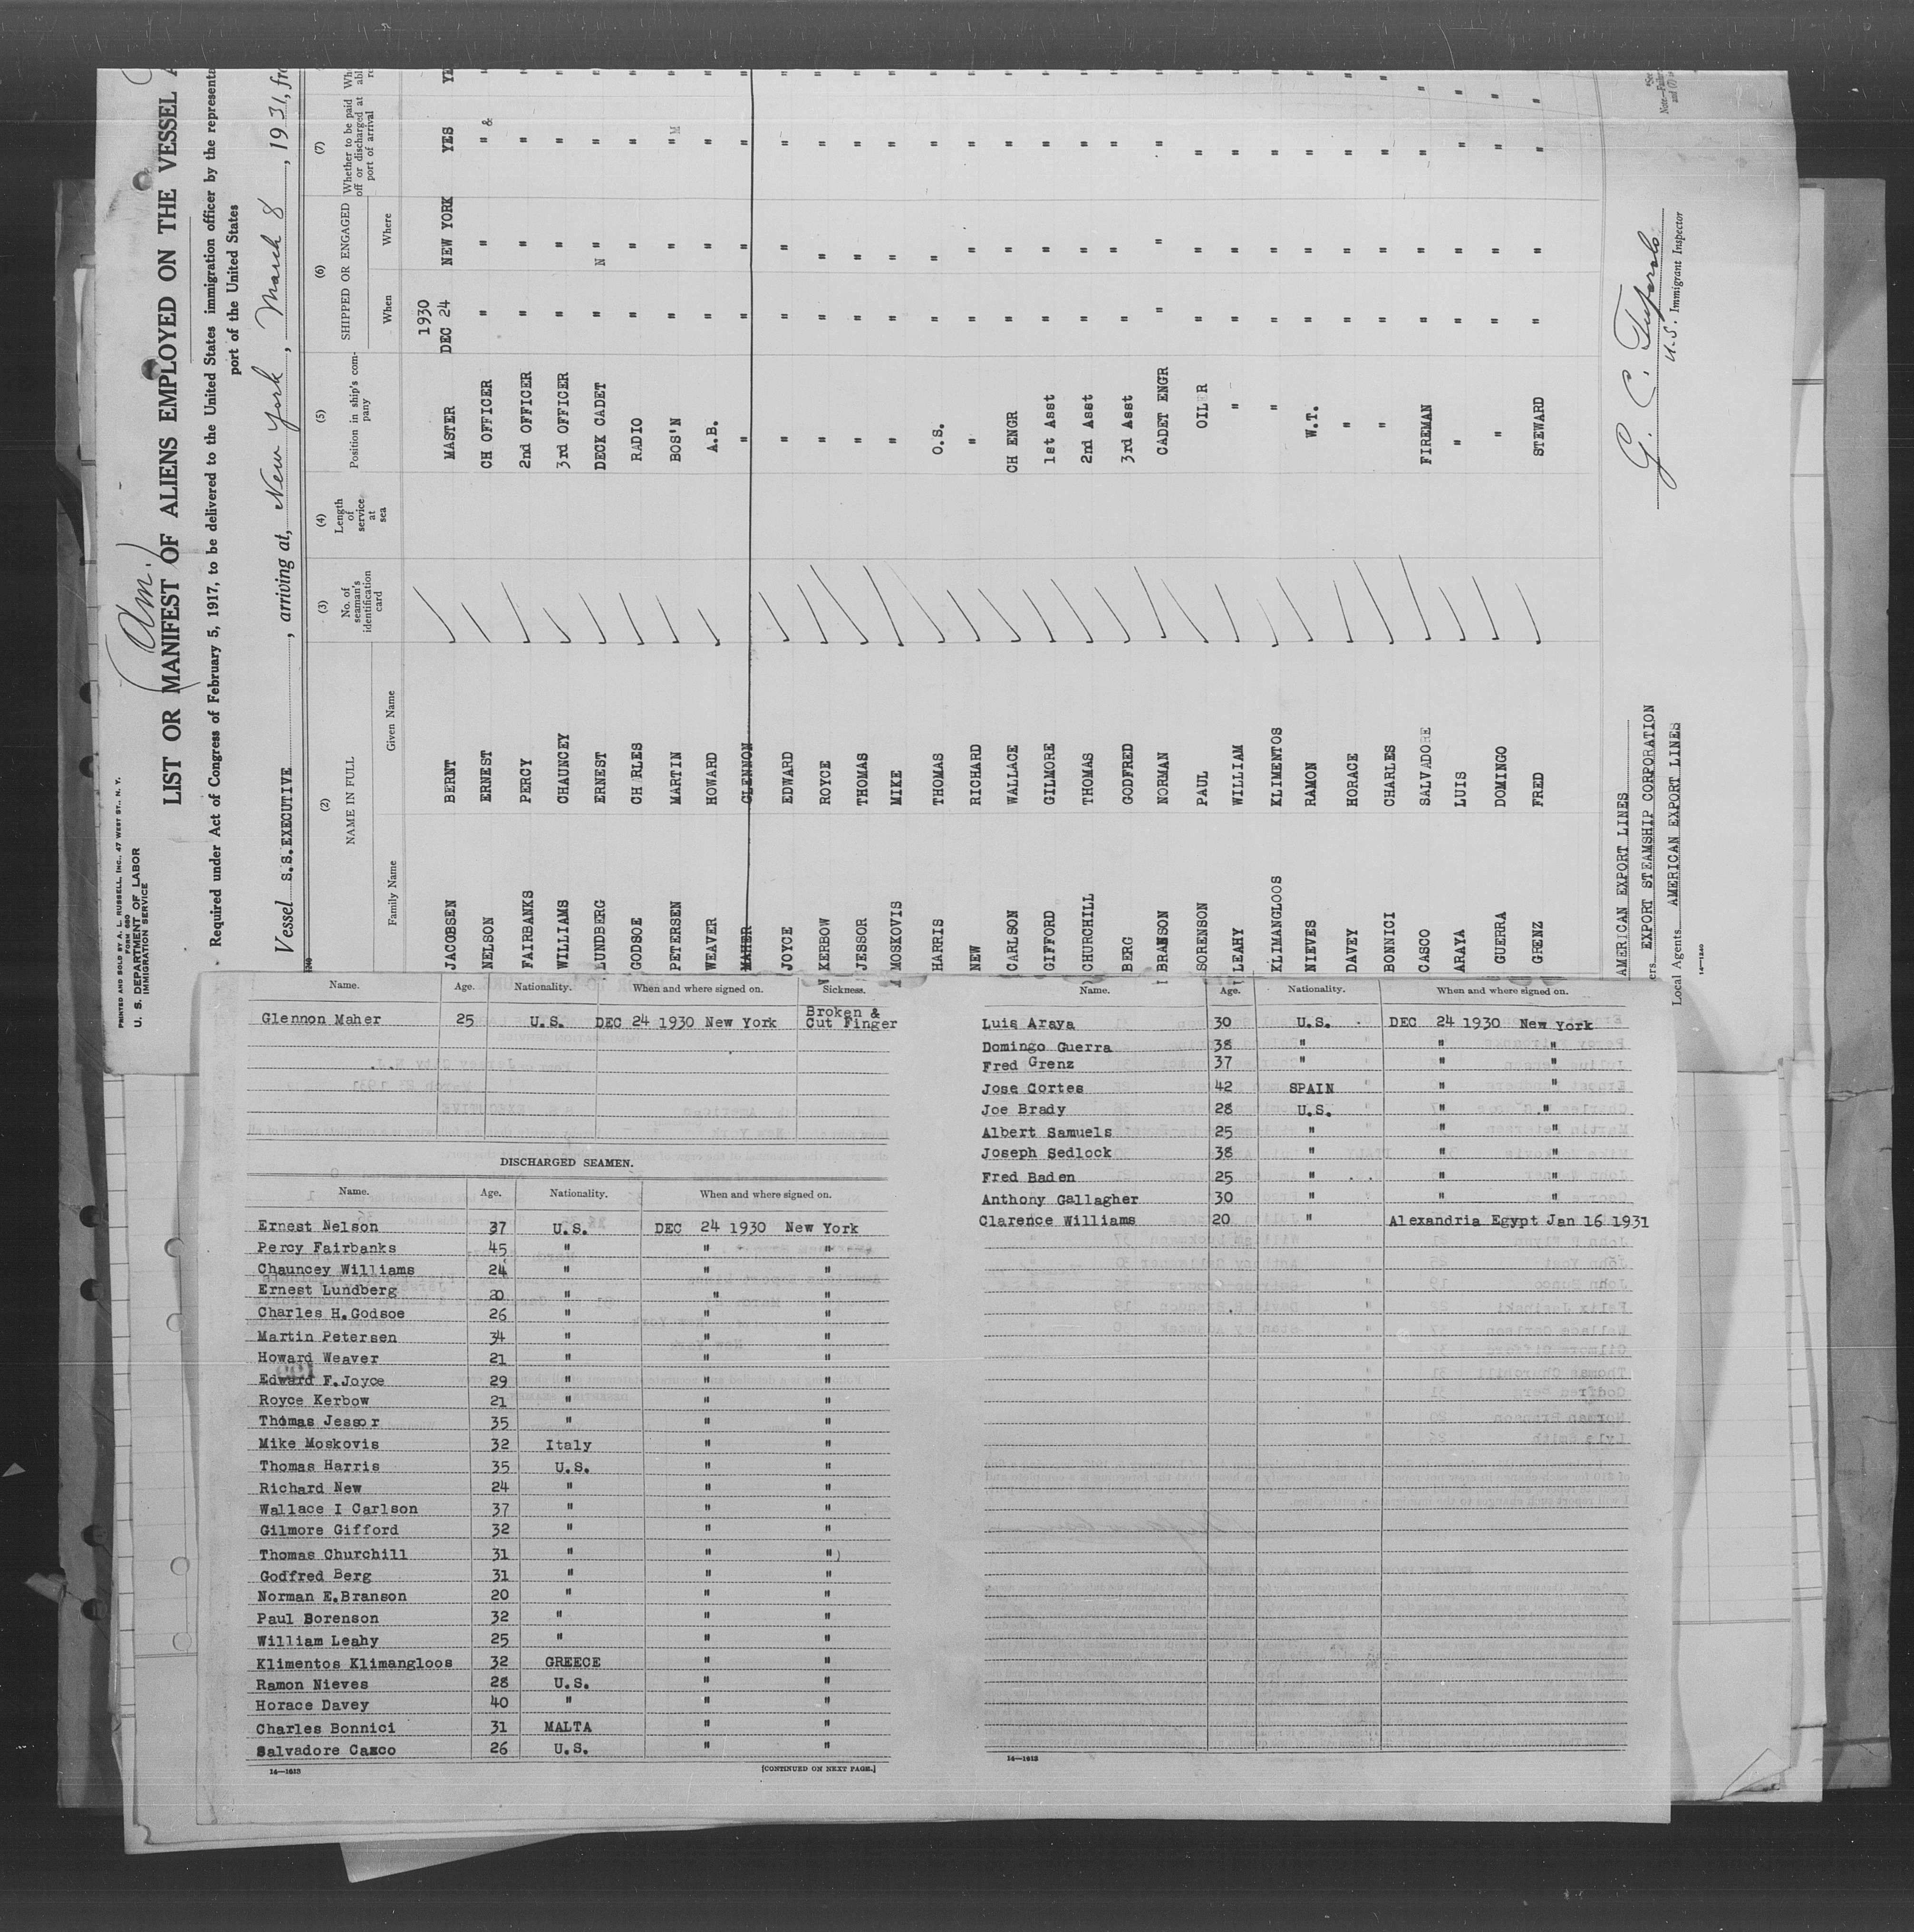 PRINTED AND SOLD BY A. L. RUSSELL, INC., 47 WEST ST., N. Y.
FORM 680
U. S. DEPARTMENT OF LABOR
IMMIGRATION SERVICE
(Am.)
LIST OR MANIFEST OF ALIENS EMPLOYED ON THE VESSEL
Required under Act of Congress of February 5, 1917, to be delivered to the United States immigration officer by the representa
port of the United States
Vessel S.S.EXECUTIVE, arriving at, New York, March 8, 1931, fr
(2) (3) (4) (5) (6) (7)
NAME IN FULL No. of seaman's identification card Length of service at sea Position in ship's company SHIPPED OR ENGAGED Whether to be paid off or discharged at port of arrival
Family Name Given Name When Where
1930
JACOBSEN BERNT MASTER DEC 24 NEW YORK YES YE
NELSON ERNEST CH OFFICER " " " & "
FAIRBANKS PERCY 2nd OFFICER " " " "
WILLIAMS CHAUNCEY 3rd OFFICER " " " "
LUNDBERG ERNEST DECK CADET " " N " "
GODSOE CHARLES RADIO " " " "
PETERSEN MARTIN BOS'N " " " M "
WEAVER HOWARD A.B. " " " "
MAHER GLENNON " " " " "
JOYCE EDWARD " " " " "
KERBOW ROYCE " " " " "
JESSOR THOMAS " " " " "
MOSKOVIS MIKE " " " " "
HARRIS THOMAS O.S. " " " "
NEW RICHARD " " " " "
CARLSON WALLACE CH ENGR " " " "
GIFFORD GILMORE 1st Asst " " " "
CHURCHILL THOMAS 2nd Asst " " " "
BERG GODFRED 3rd Asst " " " "
BRANSON NORMAN CADET ENGR " " " "
SORENSON PAUL OILER " " " "
LEAHY WILLIAM " " " " "
KLIMANGLOOS KLIMENTOS " " " " "
NIEVES RAMON W.T. " " " "
DAVEY HORACE " " " " "
BONNICI CHARLES " " " " "
CASCO SALVADORE FIREMAN " " " "
ARAYA LUIS " " " " "
GUERRA DOMINGO " " " " "
GRENZ FRED STEWARD " " " "
AMERICAN EXPORT LINES
ers EXPORT STEAMSHIP CORPORATION
Local Agents AMERICAN EXPORT LINES
14—1240
U.S. Immigrant Inspector
Name. Age. Nationality. When and where signed on. Sickness.
Glennon Maher 25 U.S. DEC 24 1930 New York Broken &
Cut Finger
DISCHARGED SEAMEN.
Name. Age. Nationality. When and where signed on.
Ernest Nelson 37 U.S. DEC 24 1930 New York
Percy Fairbanks 45 " " "
Chauncey Williams 24 " " "
Ernest Lundberg 20 " " "
Charles H.Godsoe 26 " " "
Martin Petersen 34 " " "
Howard Weaver 21 " " "
Edward F.Joyce 29 " " "
Royce Kerbow 21 " " "
Thomas Jessor 35 " " "
Mike Moskovis 32 Italy " "
Thomas Harris 35 U.S. " "
Richard New 24 " " "
Wallace I Carlson 37 " " "
Gilmore Gifford 32 " " "
Thomas Churchill 31 " " ")
Godfred Berg 31 " " "
Norman E.Branson 20 " " "
Paul Sorenson 32 " " "
William Leahy 25 " " "
Klimentos Klimangloos 32 GREECE " "
Ramon Nieves 28 U.S. " "
Horace Davey 40 " " "
Charles Bonnici 31 MALTA " "
Salvadore Casco 26 U.S. " "
14—1613 [CONTINUED ON NEXT PAGE.]
Name. Age. Nationality. When and where signed on.
Luis Araya 30 U.S. DEC 24 1930 New York
Domingo Guerra 38 " " "
Fred Grenz 37 " " "
Jose Cortes 42 SPAIN " "
Joe Brady 28 U.S. " "
Albert Samuels 25 " " "
Joseph Sedlock 38 " " "
Fred Baden 25 " " "
Anthony Gallagher 30 " " "
Clarence Williams 20 " Alexandria Egypt Jan 16 1931
14—1613